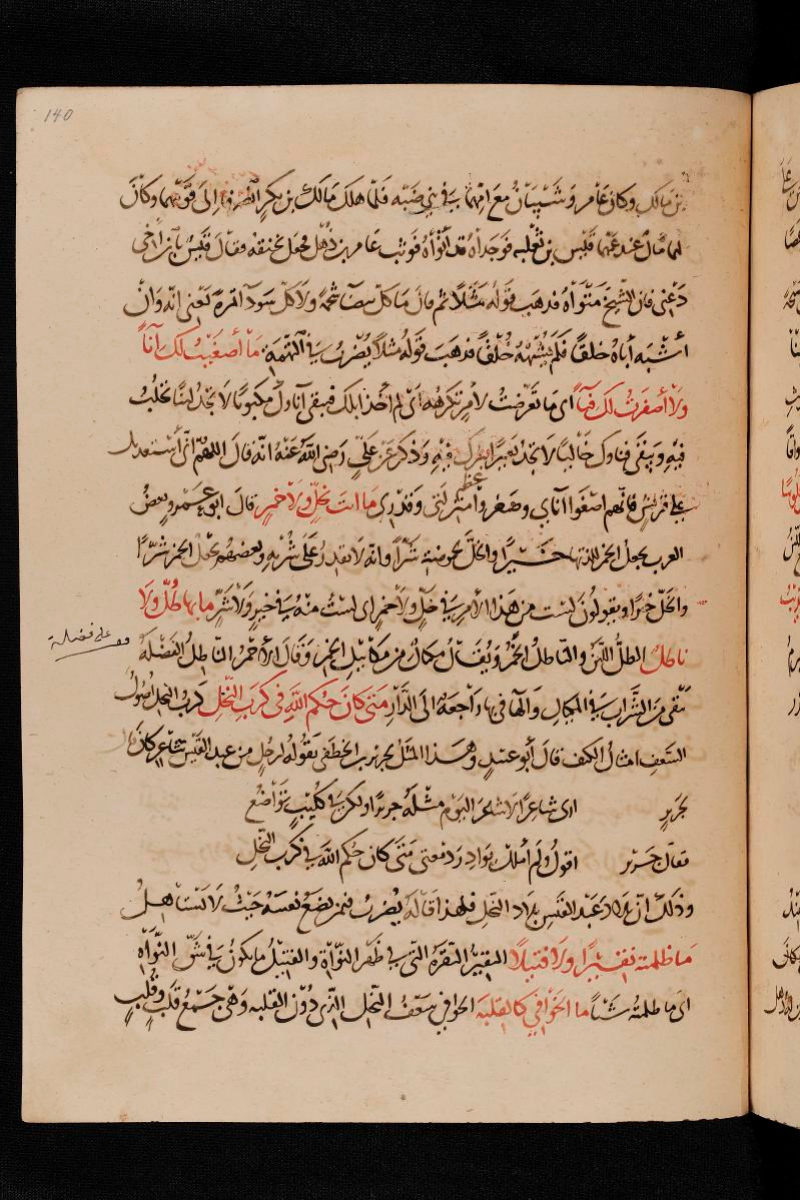 140
بن مالك وكان عامر وشيبان مع امهما في بني ضبه فلما هلك مالك بن بكر انصرفا الى قومهما وكان
لهما مال عند عمهما قيس بن ثعلبه فوجداه قد اتواه فوثب عامر بن ذهل فجعل يخنقه فقال قيس يا بن اخى
دعنى فان الشيخ متواه فذهب قوله مثلا ثم قال ما كل بيضا شحمة ولا كل سودا تمرة يعنى انه وان
أشبه أباه خلقا فلم يشبهه خلقا فذهب قوله مثلا يضرب في التهمة ما أصغيت لك آناً
ولا أصفرت لك فناً اى ما تعرضت لامر تكرهه اى لم اخذ ابلك فيبقى آناوك مكبوبا لا تجد لبنا تحلب
فيه ويبقى فناوك خاليا لا تجد بعيرا يبرك فيه وذكر عن على رضى الله عنه انه قال اللهم انى أستعديك
على قريش فانهم اصغوا اناي وصغروا عظم منزلتى وقدرى ما انت بخل ولا خمر قال ابو عمرو وبعض
العرب يجعل الخمر للذتها خيرا والخل لحموضته شرا وانه لا يقدر على شربه وبعضهم يجعل الخمر شرا
والخل خيرا ويقولون لست من هذا الامر في خل ولا خمر اى لست منه في خير ولا شر ما بها طل ولا
ناطل الطل اللبن والناطل الخمر ويقال مكيال من مكاييل الخمر وقال الاحمر الناطل الفضلة
تبقى من الشراب في المكيال والها في بها راجعة الى الدار متى كان حكم الله في كرب النخل كرب النخل اصول
السعف امثال الكف قال أبو عبيد وهذا المثل لجرير بن الخطفى يقوله لرجل من عبد القيس شاعر كان
بجرير    ارى شاعرا لا شاعر اليوم مثله جريرا ولكن في كليب تواضع
فقال جرير    اقول ولم أملك بوادر دمعتى متى كان حكم الله في كرب النخل
وذلك أن بلاد عبد القيس بلاد النخل فلهذا قاله يضرب فيمن يضع نفسه حيث لا يستاهل
ما ظلمته نقيرا ولا فتيلا النقير النقرة التى في ظهر النواة والفتيل ما يكون في شق النواة
اى ما ظلمته شيئا ما الخوافي كالقلبة الخوافى سعف النخل الذى دون القلبه وهى جمع قلب وقلب